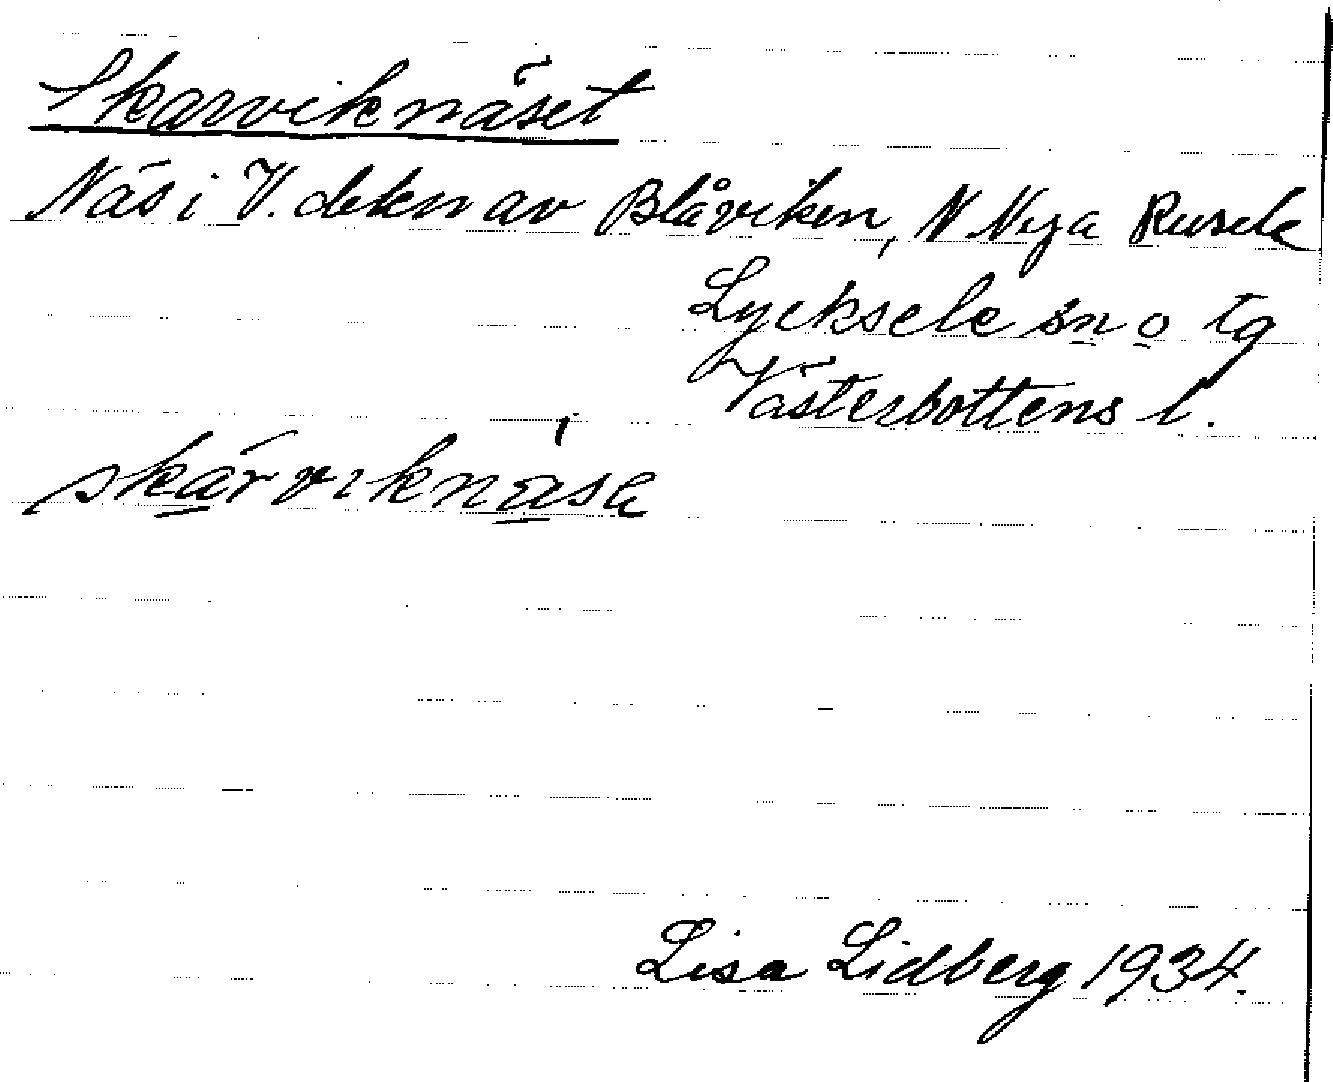 Skarviknäset
Näs i V. delen av Blåviken, N Nya Rusele
Lycksele sn o tg
Västerbottens l.
skárvikná̀sa
Lisa Lidberg 1934.